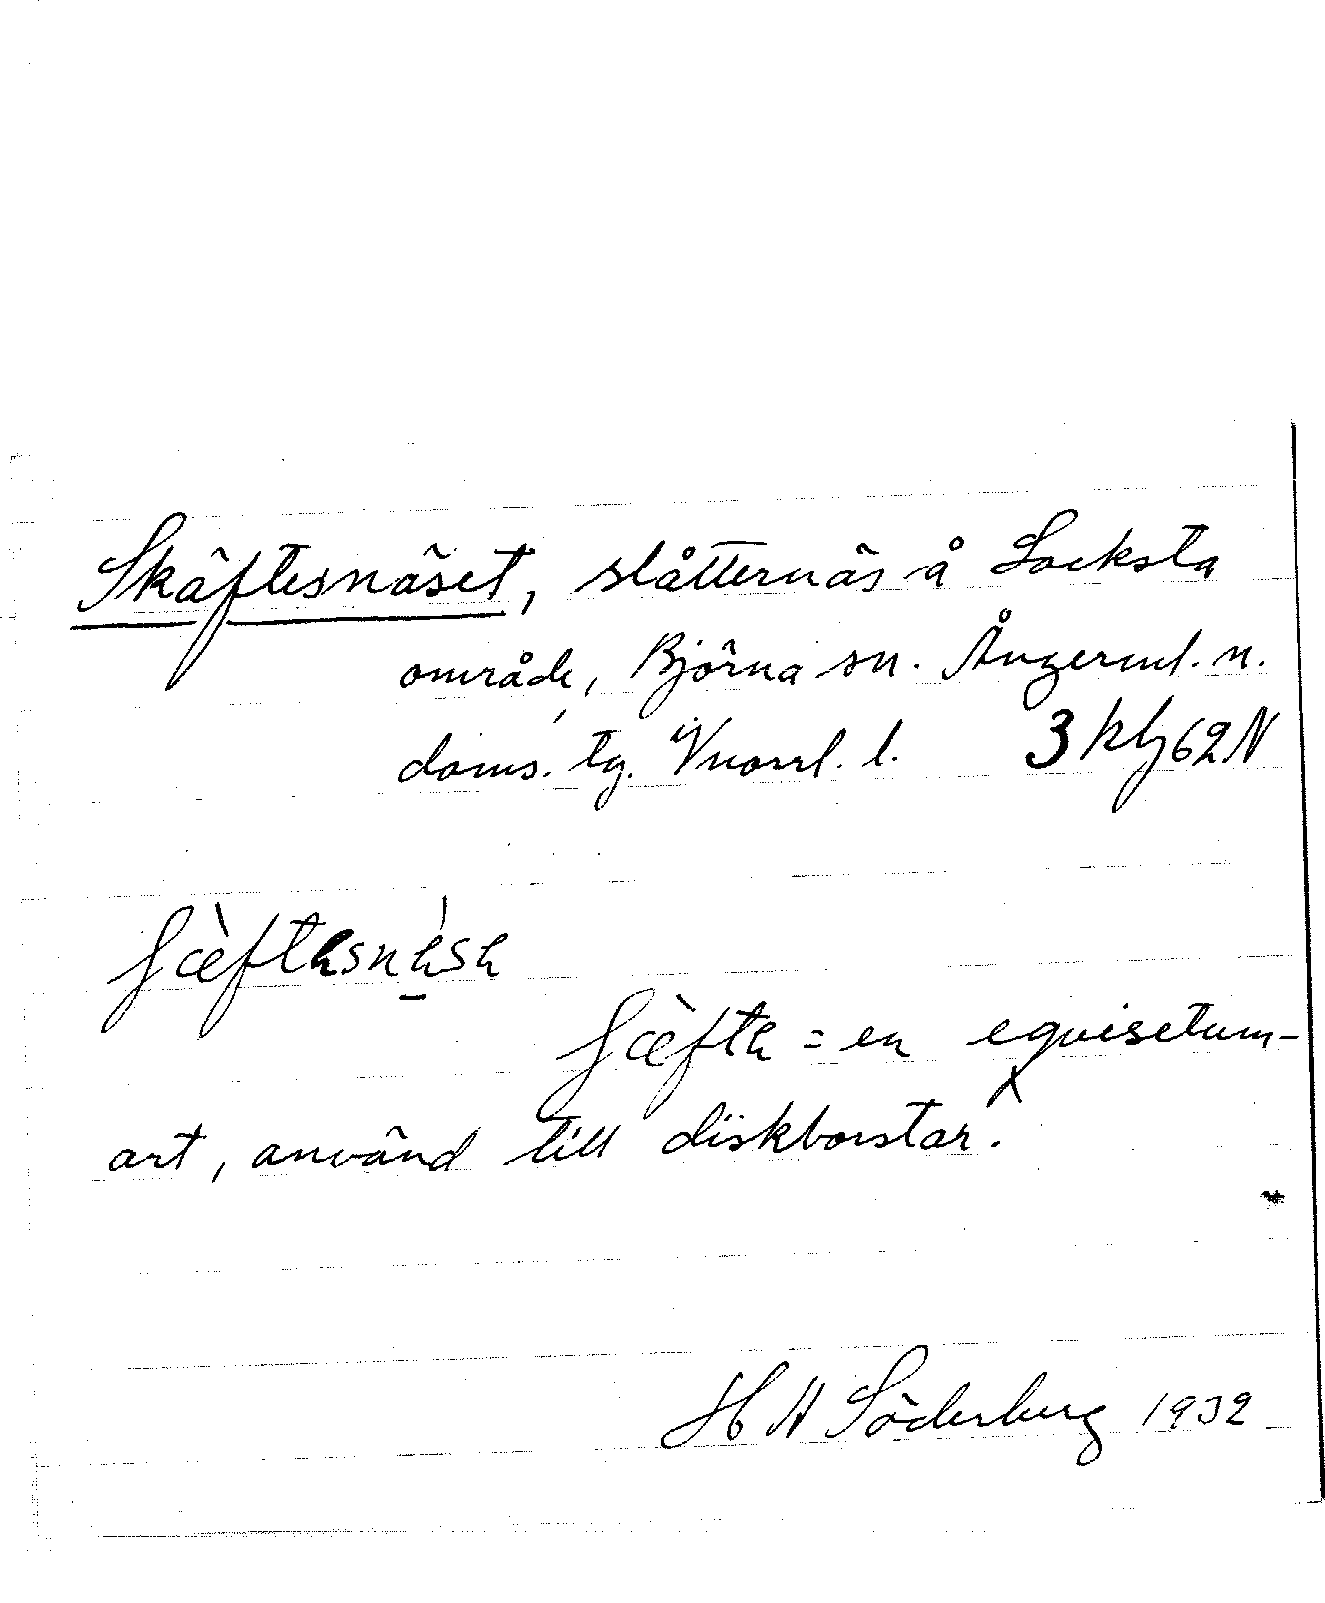 Skäftesnäset, slåtternäs å Locksta
område, Björna sn. Ångerml. n.
doms. tg. Vnorrl. l. 3 klg 62 N
ʃæ̀ftesnése
ʃæ̀fte = en equisetum-
art, använd till diskborstar.
H A Söderberg 1932